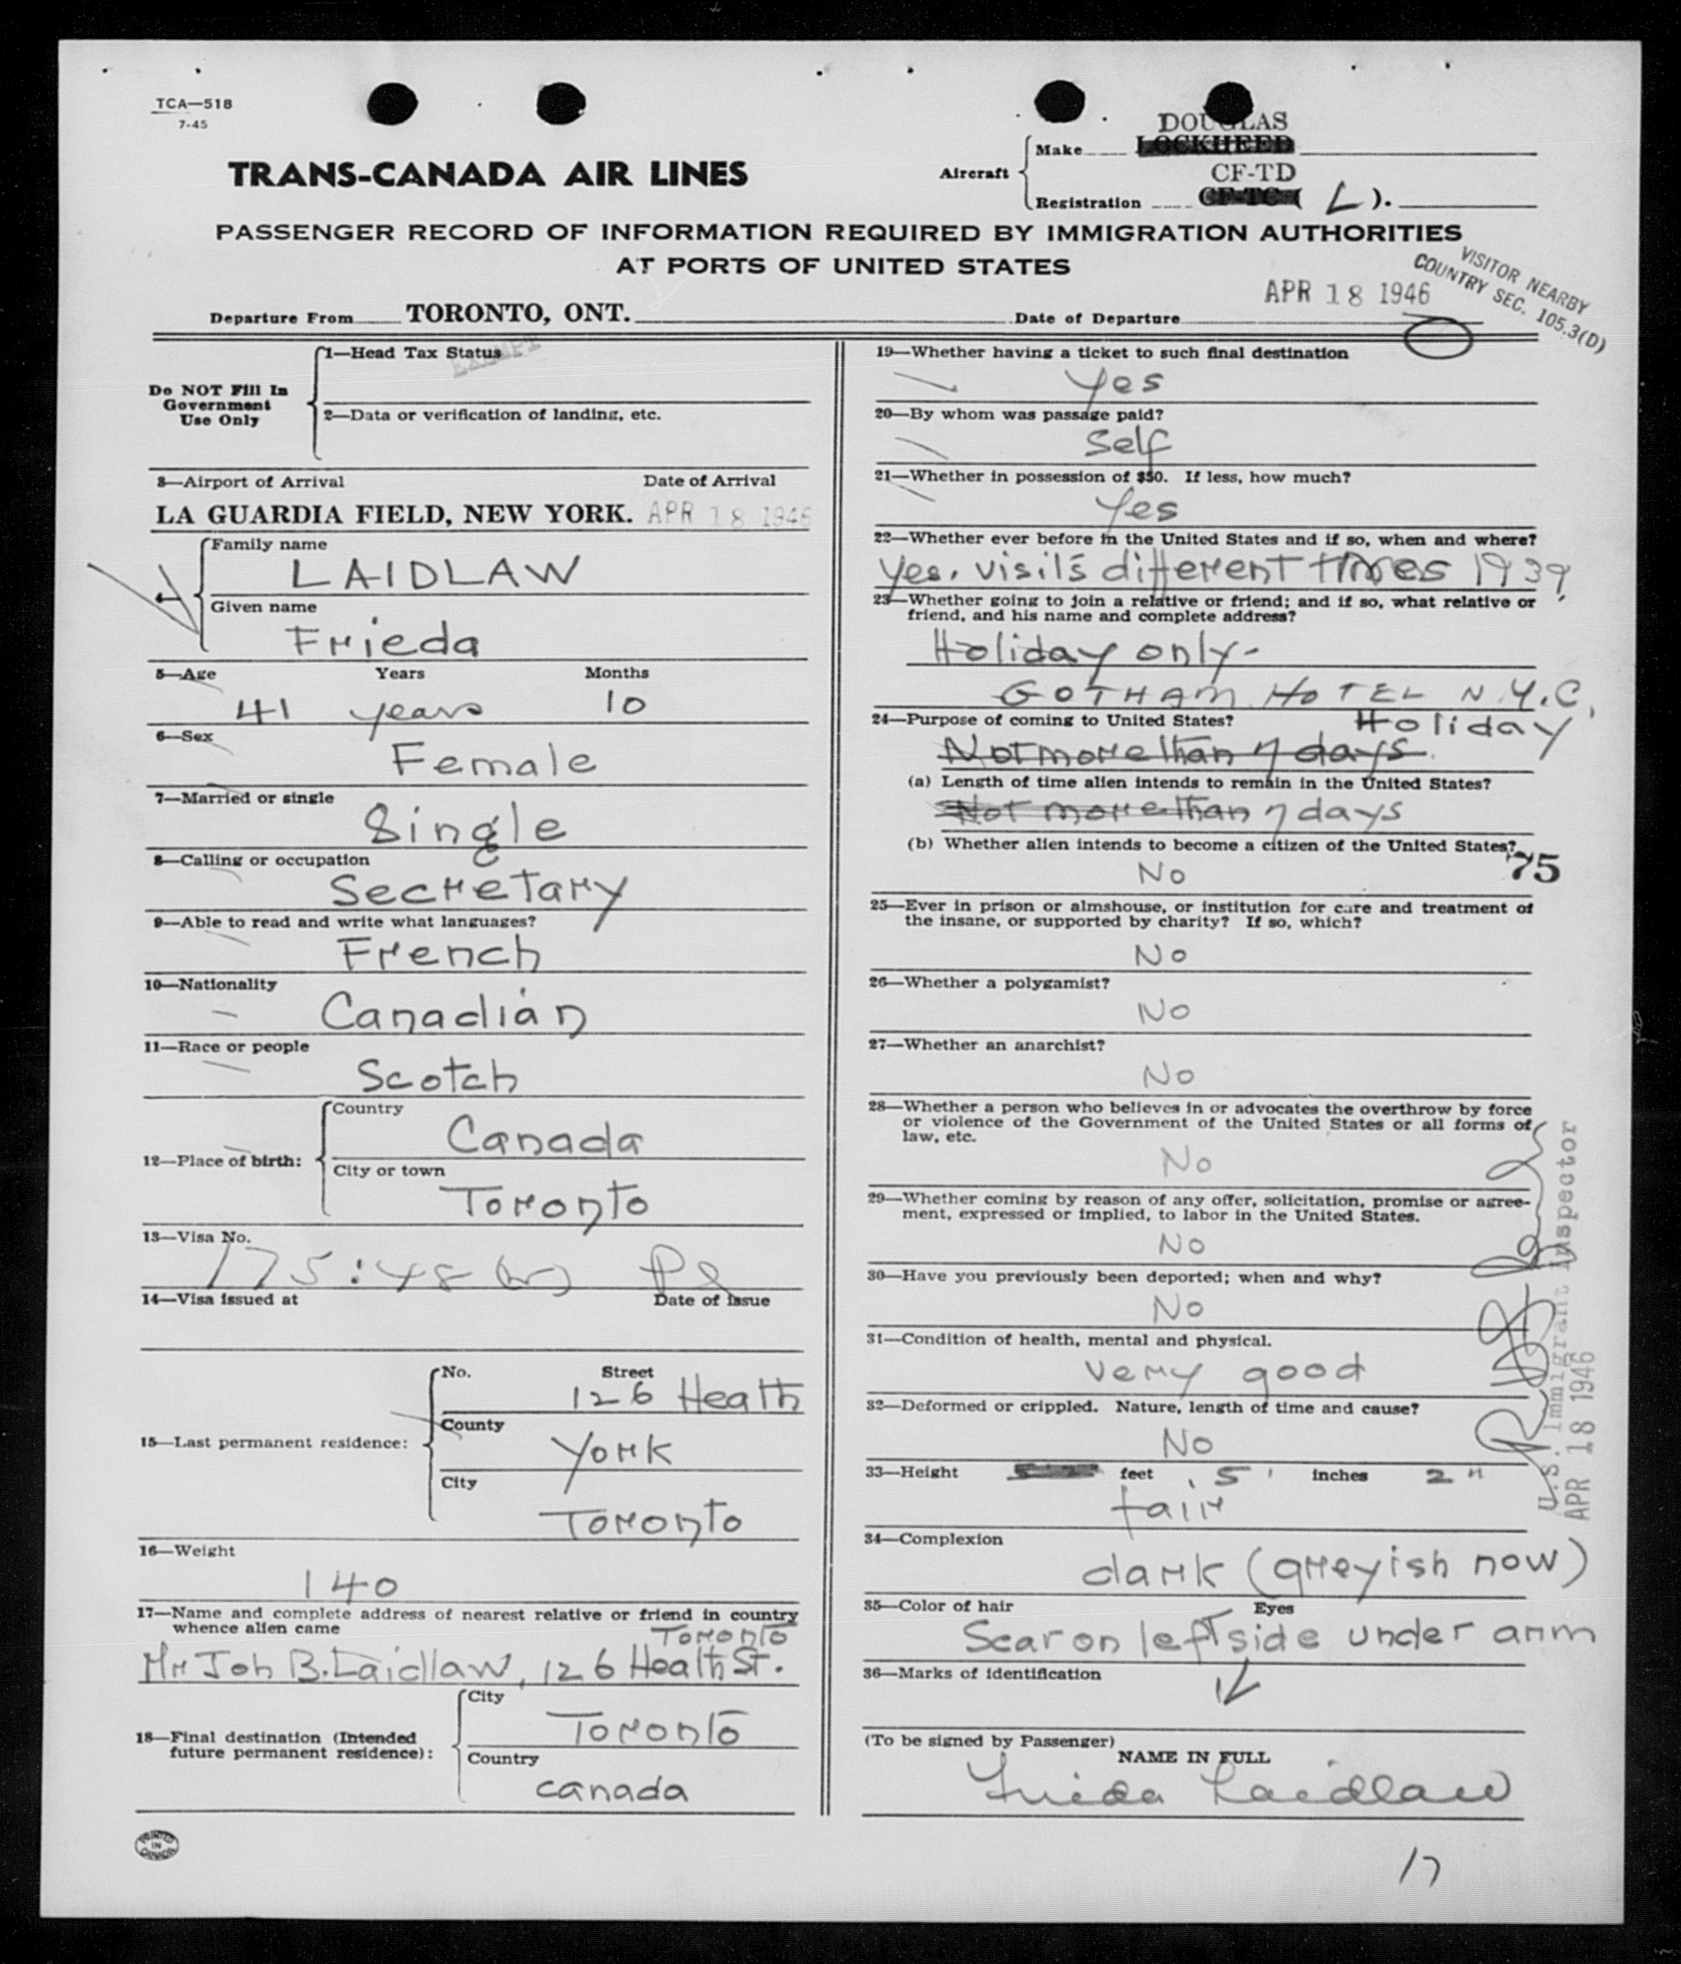 TCA—518
7-45
TRANS-CANADA AIR LINES
Aircraft
Make
DOUGLAS
LOCKHEED
Registration
CF-TD
CF-TC- ( L ).
PASSENGER RECORD OF INFORMATION REQUIRED BY IMMIGRATION AUTHORITIES
AT PORTS OF UNITED STATES
VISITOR NEARBY
COUNTRY SEC. 105.3(D)
Departure From TORONTO, ONT. Date of Departure APR 18 1946
Do NOT Fill In
Government
Use Only
1—Head Tax Status EXEMPT
2—Data or verification of landing, etc.
3—Airport of Arrival Date of Arrival
LA GUARDIA FIELD, NEW YORK. APR 18 1946
4
Family name
LAIDLAW
Given name
Frieda
5—Age Years Months
41 years 10
6—Sex
Female
7—Married or single
Single
8—Calling or occupation
Secretary
9—Able to read and write what languages?
French
10—Nationality
Canadian
11—Race or people
Scotch
12—Place of birth:
Country
Canada
City or town
Toronto
13—Visa No.
14—Visa issued at Date of issue
15—Last permanent residence:
No. Street
126 Heath
County
York
City
Toronto
16—Weight
140
17—Name and complete address of nearest relative or friend in country
whence alien came
Toronto
Mr Joh B. Laidlaw, 126 Heath St.
18—Final destination (Intended
future permanent residence):
City
Toronto
Country
canada
PRINTED
IN
CANADA
19—Whether having a ticket to such final destination
Yes
20—By whom was passage paid?
Self
21—Whether in possession of $50. If less, how much?
Yes
22—Whether ever before in the United States and if so, when and where?
Yes. visits different times 1939
23—Whether going to join a relative or friend; and if so, what relative or
friend, and his name and complete address?
Holiday only-
GOTHAM HOTEL N.Y.C.
24—Purpose of coming to United States?
Holiday
Not more than 7 days
(a) Length of time alien intends to remain in the United States?
Not more than 7 days
(b) Whether alien intends to become a citizen of the United States?
No
75
25—Ever in prison or almshouse, or institution for care and treatment of
the insane, or supported by charity? If so, which?
No
26—Whether a polygamist?
No
27—Whether an anarchist?
No
28—Whether a person who believes in or advocates the overthrow by force
or violence of the Government of the United States or all forms of
law, etc.
No
29—Whether coming by reason of any offer, solicitation, promise or agree-
ment, expressed or implied, to labor in the United States.
No
30—Have you previously been deported; when and why?
No
31—Condition of health, mental and physical.
very good
32—Deformed or crippled. Nature, length of time and cause?
No
33—Height feet 5' inches 2"
fair
34—Complexion
dark (greyish now)
35—Color of hair Eyes
Scar on left side under arm
36—Marks of identification
(To be signed by Passenger)
NAME IN FULL
Frieda Laidlaw
U.S. Immigrant Inspector
APR 18 1946
17